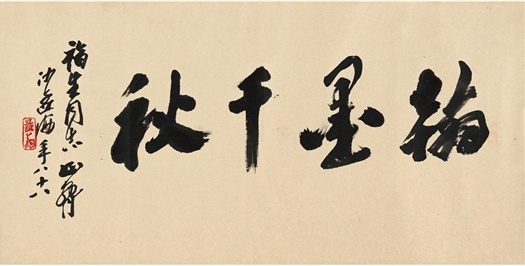 翰墨千秋
福生同志正
沙孟海年八十八